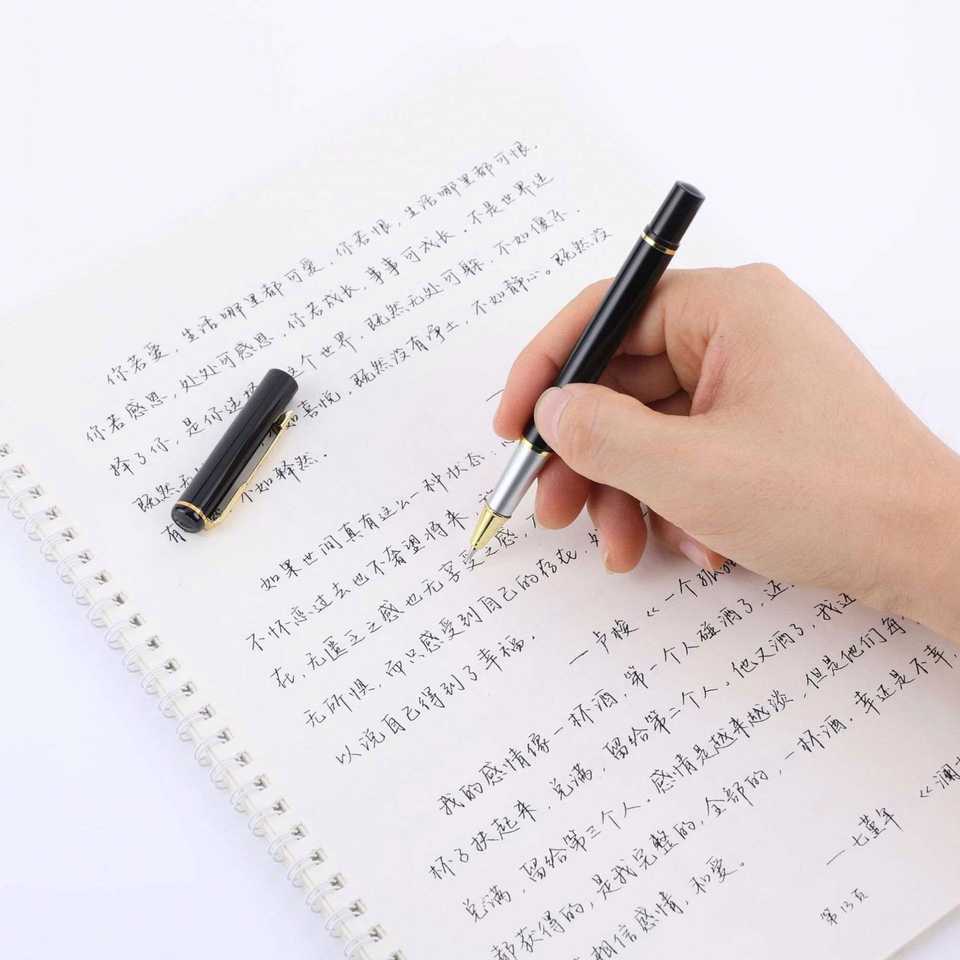 你若爱，生活哪里都可爱，你若恨，生活哪里都可恨，
你若感恩，处处可感恩，你若成长，事事可成长，不是世界选
择了你，是你选择 这个世界，既然无处可躲，不如傻乐，
既然无 不如喜悦，既然没有净土，不如静心。既然没
有 不如释然..
如果世间真有这么一种状态：
不怀恋过去也不奢望将来，
在，无匮乏之感也无享受之感，
无所惧，而只感受到自己的存在，
以说自己得到了幸福。
—卢梭《一个孤
我的感情像一杯酒，第一个人碰洒了，还
杯子扶起来，兑满，留给第二个人。他又洒了，我还
兑满，留给第三个人。感情是越来越淡，但是他们每
都获得的，是我完整的，全部的，一杯酒，幸还是不幸，
相信感情，和爱。
—七堇年 《澜
第13页